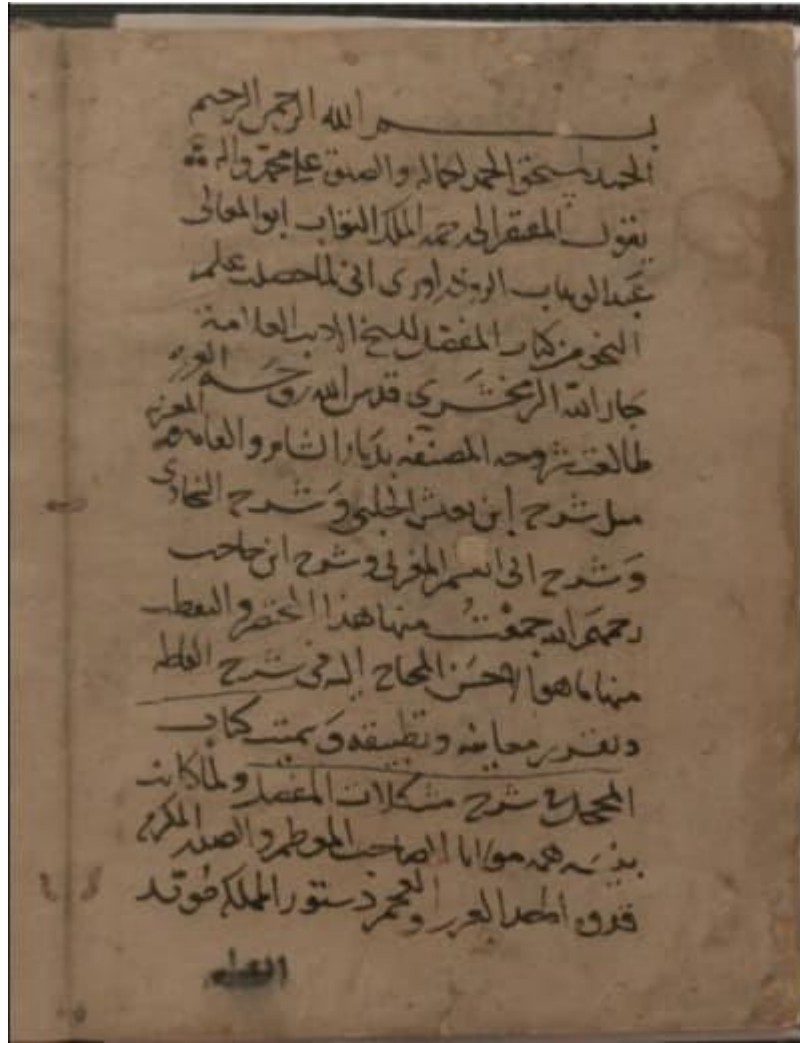 بسم الله الرحمن الرحيم
الحمد لمستحق الحمد لجماله والصلوة على محمد وآله
يقول المفتقر الى رحمة الملك التواب ابو المعالى
عبد الوهاب انى لما حصلت علم
النحو من كتاب المفصل للشيخ الاديب العلامة
جار الله الزمخشرى قدس الله روحه العزيز
طالعت شروحه المصنفة بديار الشام والعامة
مثل شرح ابن يعيش الحلبى وشرح السخاوى
وشرح ابى القسم المغربى وشرح ابن حاجب
رحمهم الله جمعت منها هذا المختصر والتقطت
منها ما هو الاحسن المحتاج اليه فى شرح الفاظه
وتقرير معانيه وتطبيقه وسميت كتاب
المحصل فى شرح مشكلات المفصل ولما كانت
همة مولانا الصاحب المعظم والصدر المكرم
قدوة العرب والعجم دستور المملكة